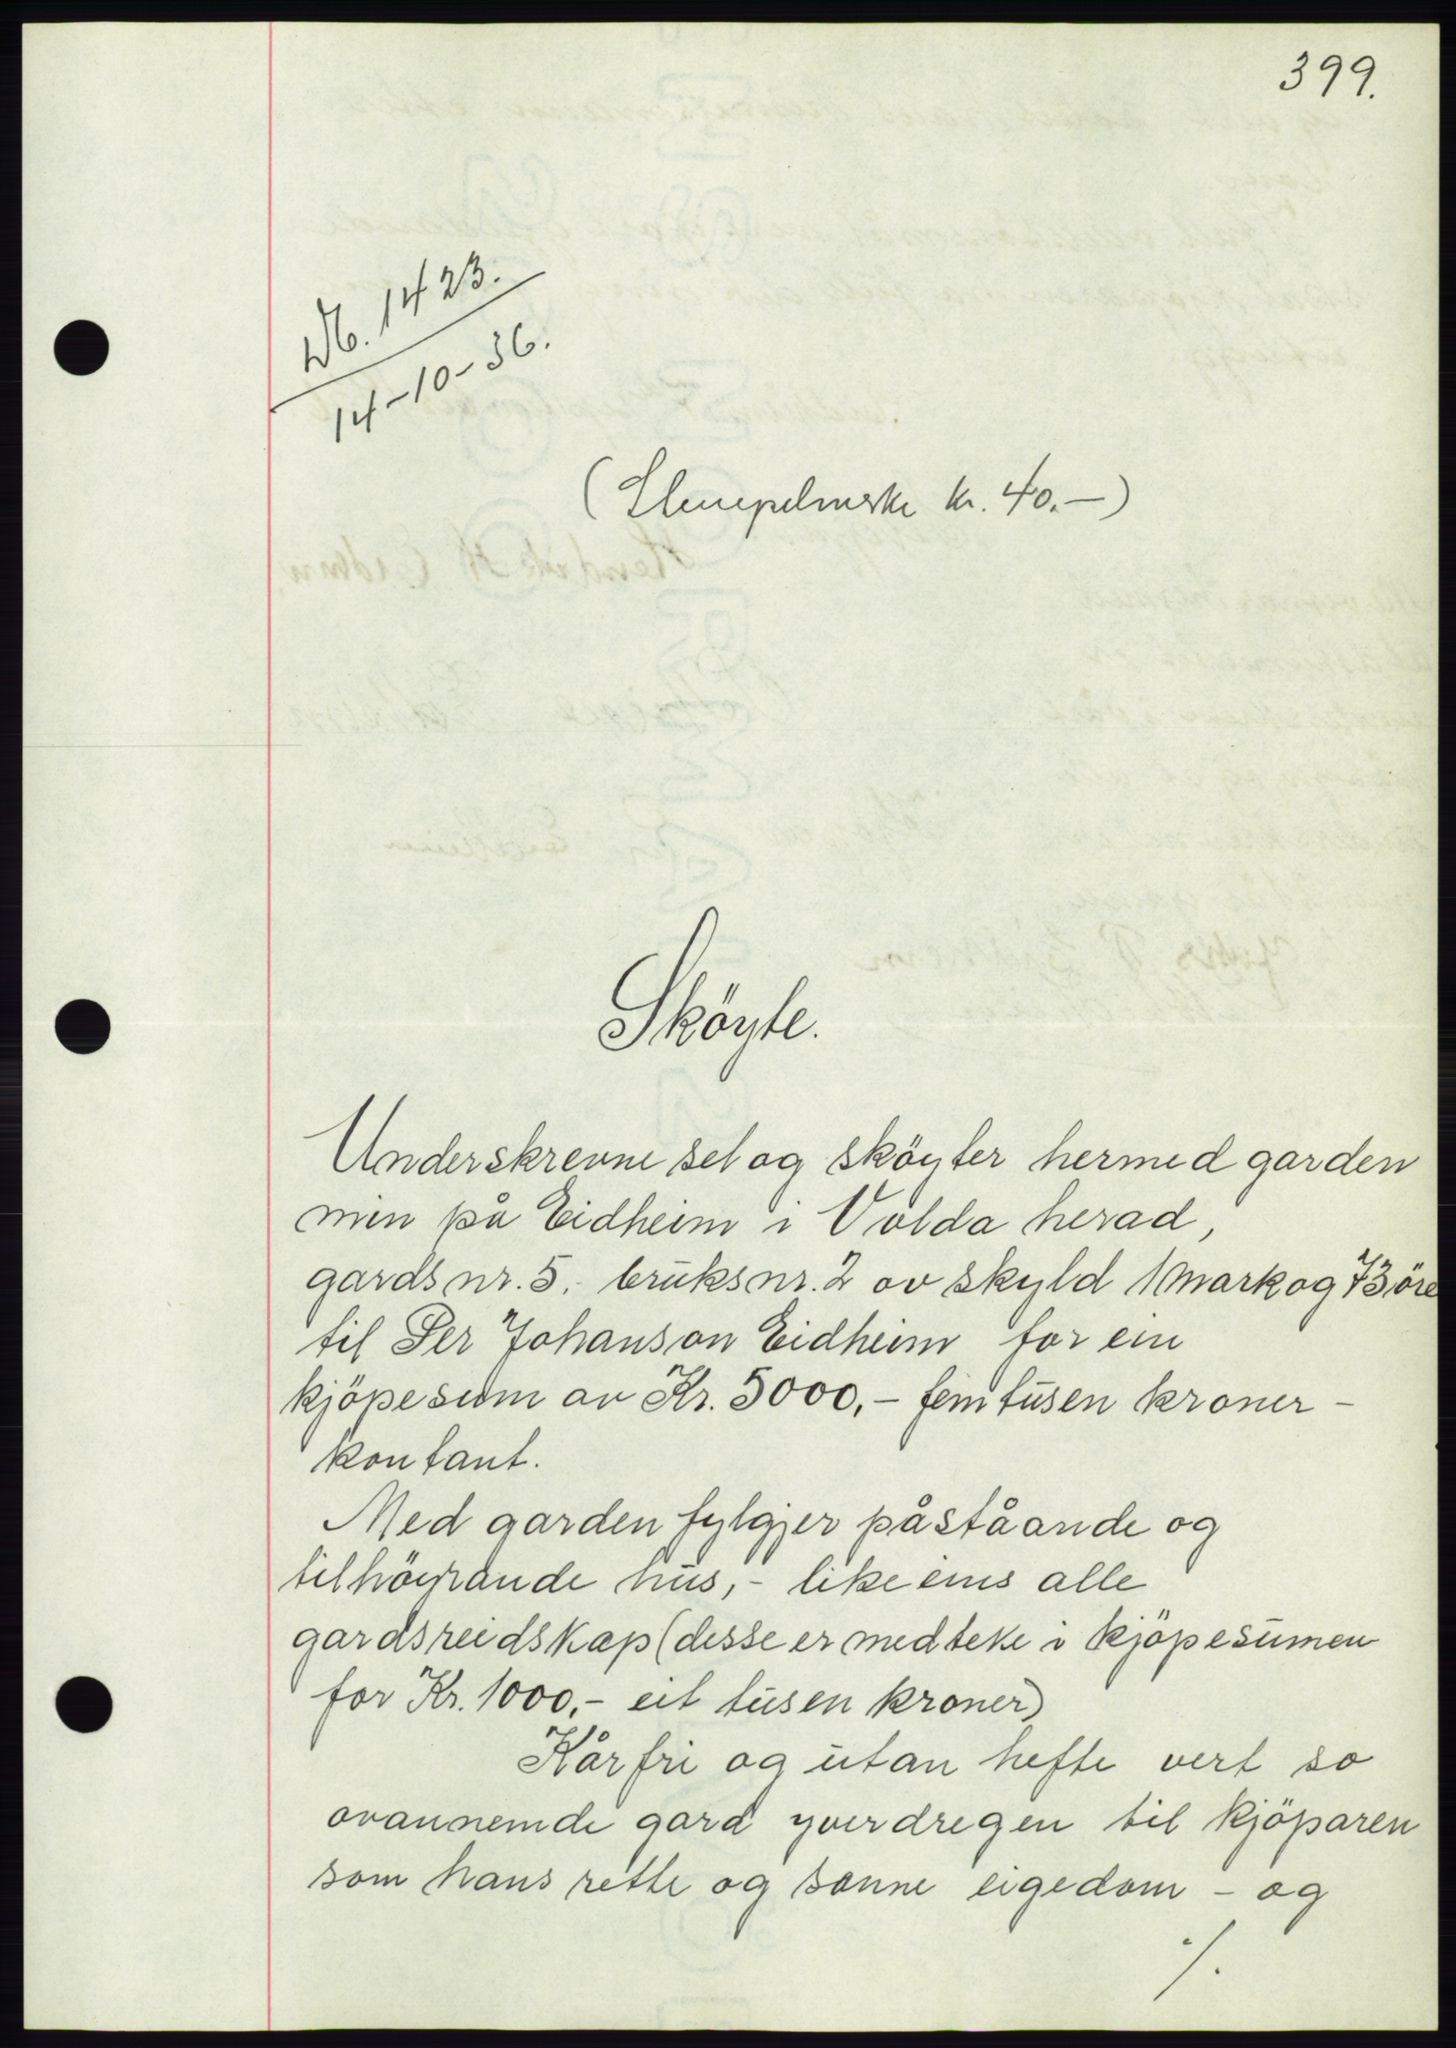 399.
Db. 1423.
14-10-36.
(Stempelmerke kr. 40.-)
Sköyte.
Underskrevne sel og sköyter hermed garden
min på Eidheim i Volda herad,
gardsnr. 5. bruksnr. 2 ov skyld 1 mark og 73 öre
til Per Johanson Eidheim for ein
kjöpesum av Kr. 5000,- femtusen kroner -
kontant.
Med garden fylgjer påståande og
tilhöyrande hus, - like eins alle
gardsreidskap (desse er medteke i kjöpesumen
for Kr. 1000,- eit tusen kroner)
Kårfri og utan hefte vert so
ovannemde gard yverdregen til kjöparen
som hans rette og sanne eigedom - og
./.